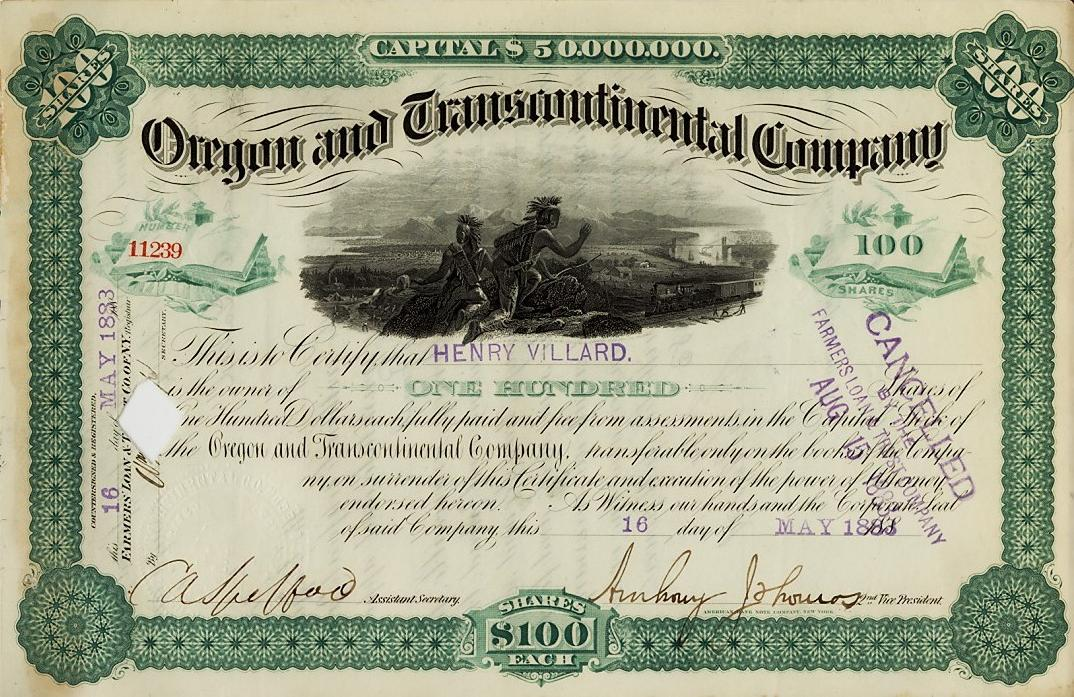 CAPITAL $50.000.000.
100 SHARES
100 SHARES
Oregon and Transcontinental Company
NUMBER
11239
100
SHARES
This is to Certify, that HENRY VILLARD.
is the owner of ONE HUNDRED Shares of
One Hundred Dollars each, fully paid and free from assessments, in the Capital Stock of
the Oregon and Transcontinental Company, transferable only on the books of the Compa-
ny, on surrender of this Certificate and execution of the power of Attorney
endorsed hereon. As Witness our hands and the Corporate Seal
of said Company, this 16 day of MAY 1883
Assistant Secretary.
Anthony J Thomas 2nd Vice President.
AMERICAN BANK NOTE COMPANY, NEW YORK.
SHARES
$100
EACH
COUNTERSIGNED & REGISTERED,
this 16 day of MAY 1883
FARMERS LOAN & CO. OF N.Y. Registrar
By
SECRETARY.
CANCELLED
BY THE
FARMERS LOAN & TRUST COMPANY
AUG 15